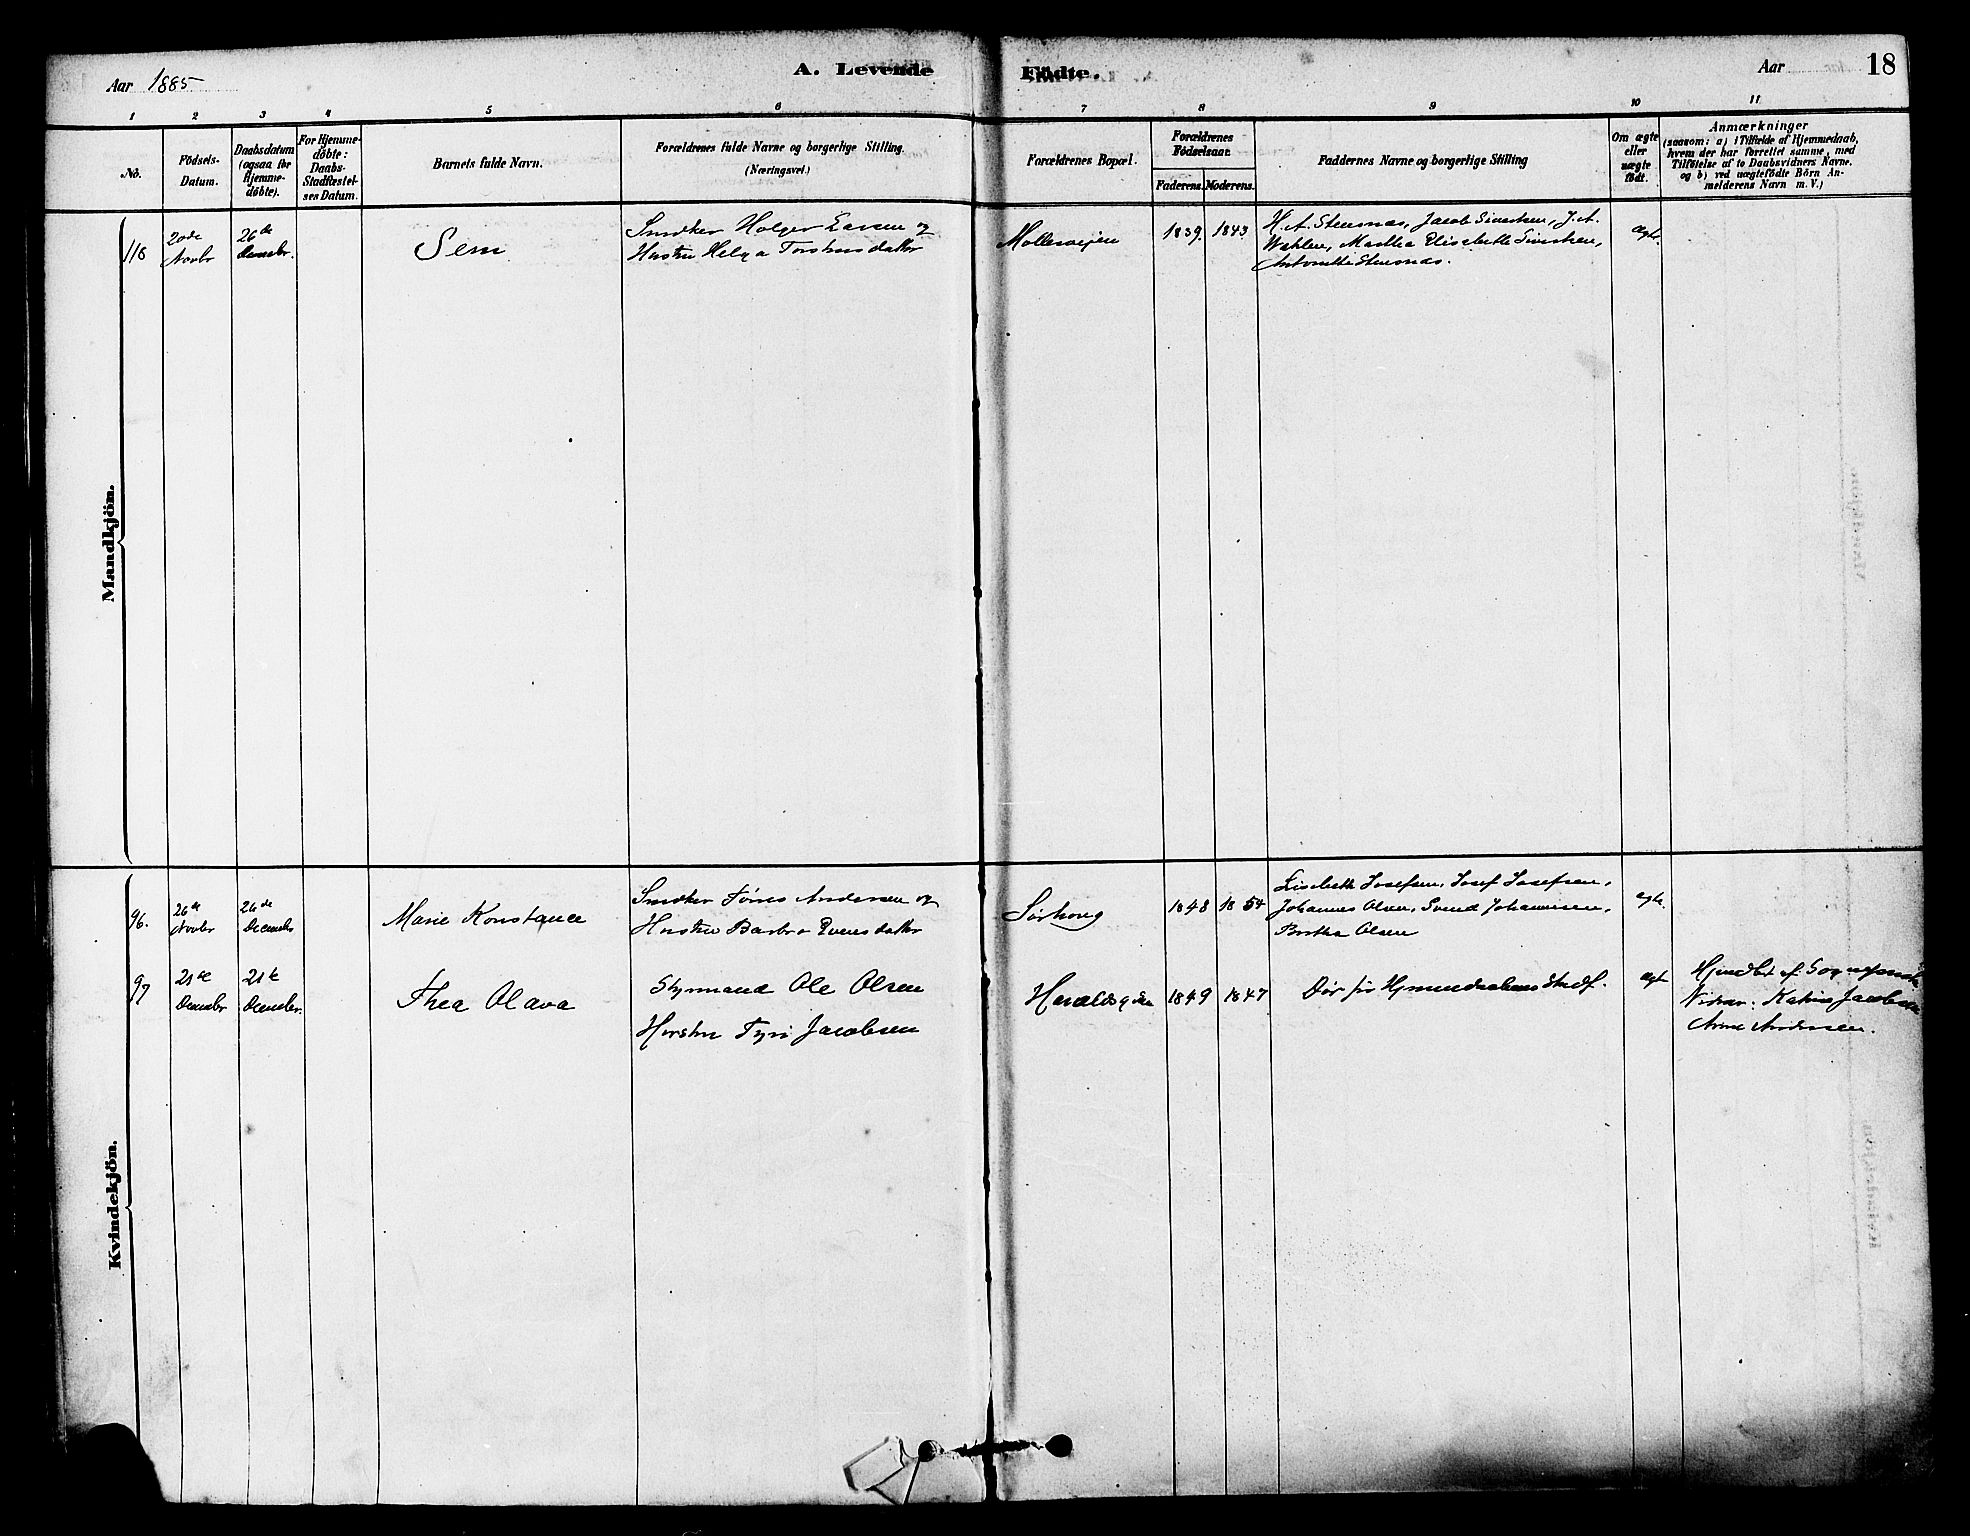 Aar 1885
A. Levende Födte.
Aar
18
1 2 3 4 5 6 7 8 9 10 11
No.
Födsels-
Datum.
Daabsdatum
(ogsaa for
Hjemme-
döbte).
For Hjemme-
döbte:
Daabs-
Stadfæstel-
sen Datum.
Barnets fulde Navn.
Forældrenes fulde Navne og borgerlige Stilling.
(Næringsvei.)
Forældrenes Bopæl.
Forældrenes
Födselsaar.
Faderens. Moderens.
Faddernes Navne og borgerlige Stilling
Om ægte
eller
uægte
födt.
Anmærkninger
(saasom: a) i Tilfælde af Hjemmedaab,
hvem der har forrettet samme, med
Tilföielse af to Daabsvidners Navne.
og b) ved uægtefödte Börn An-
melderens Navn m. V.)
Mandkjön.
118
20de
Novbr
26de
Decembr.
Sem
Snedker Holger Larsen og
Hustru Helga Torstensdatter
Møllerveien
1839. 1843
H. A. Stensnæs, Jacob Sivertsen, J. A.
Wahlen, Martha Elisabeth Sivertsen,
Antonette Stensnæs.
ægte.
Kvindekjön.
96.
26de
Novbr
26de
Decembr
Marie Konstance
Snedker Tønes Andersen og
Hustru Barbro Evensdatter
Sørhoug
1848 1854
Lisebeth Josefsen, Josef Josefsen,
Johannes Olsen, Svend Johannesen,
Bertha Olsen
ægte.
97
21de
Decembr
21de
Decembr.
Thea Olava
Styrmand Ole Olsen
Hustru Tyri Jacobsen
Haraldsgden
1849 1847
Død før Hjemmedaabens Stadf.
ægte
Hjemdbt af Sognepræst
Vidner: Katrine Jacobsen
Anne Andersen.